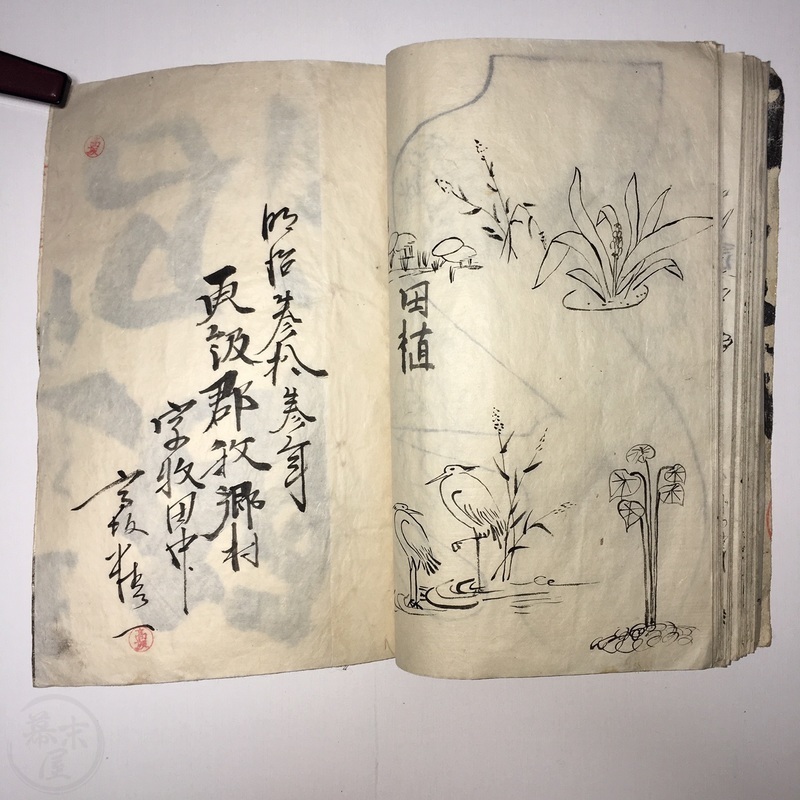 明治参拾参年
更級郡牧郷村
字牧田中
高坂精一
田植
幕末屋